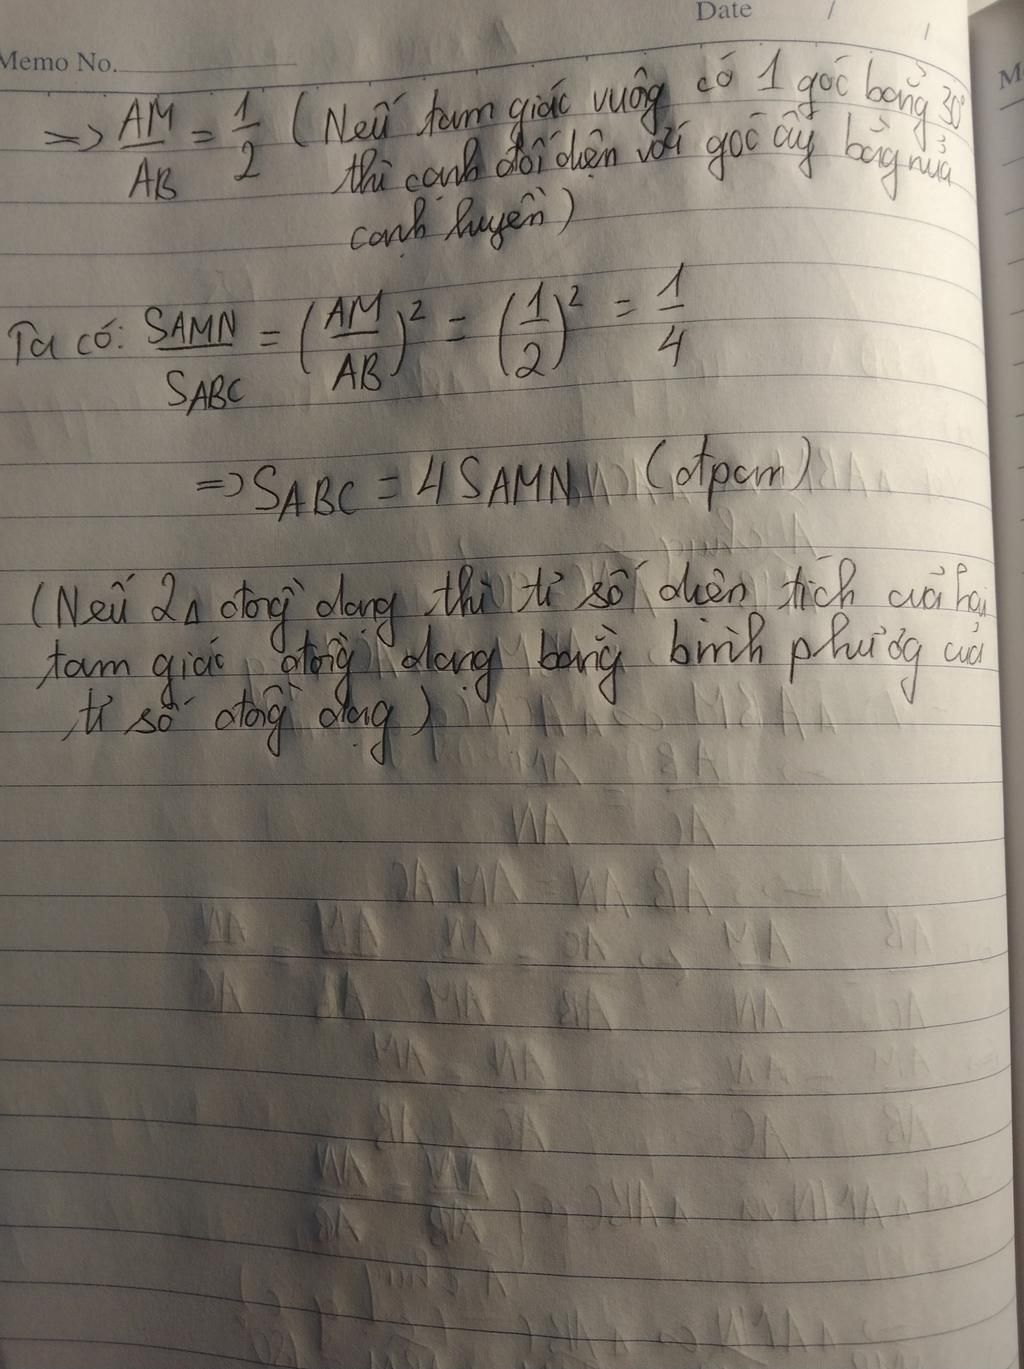 Date / /
Memo No.
=> AM/AB = 1/2 (Nếu tam giác vuông có 1 góc bằng 30°
thì cạnh đối diện với góc ấy bằng nửa
cạnh huyền)
Ta có: SAMN/SABC = (AM/AB)² = (1/2)² = 1/4
=> SABC = 4 SAMN (đpcm)
(Nếu 2Δ đồng dạng thì tỉ số diện tích của hai
tam giác đồng dạng bằng bình phương của
tỉ số đồng dạng)